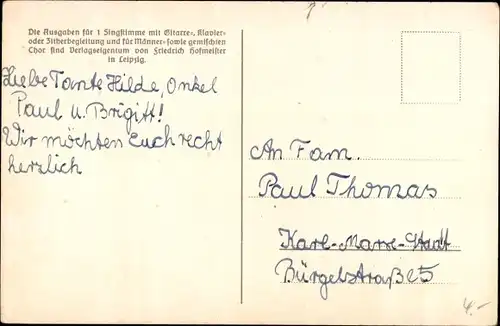 Die Ausgaben für 1 Singstimme mit Gitarre-, Klavier-
oder Zitherbegleitung und für Männer- sowie gemischten
Chor sind Verlagseigentum von Friedrich Hofmeister
in Leipzig.
Liebe Tante Hilde, Onkel
Paul u. Brigitt!
Wir möchten Euch recht
herzlich
An Fam.
Paul Thomas
Karl-Marx-Stadt
Bürgelstraße 5
4.-